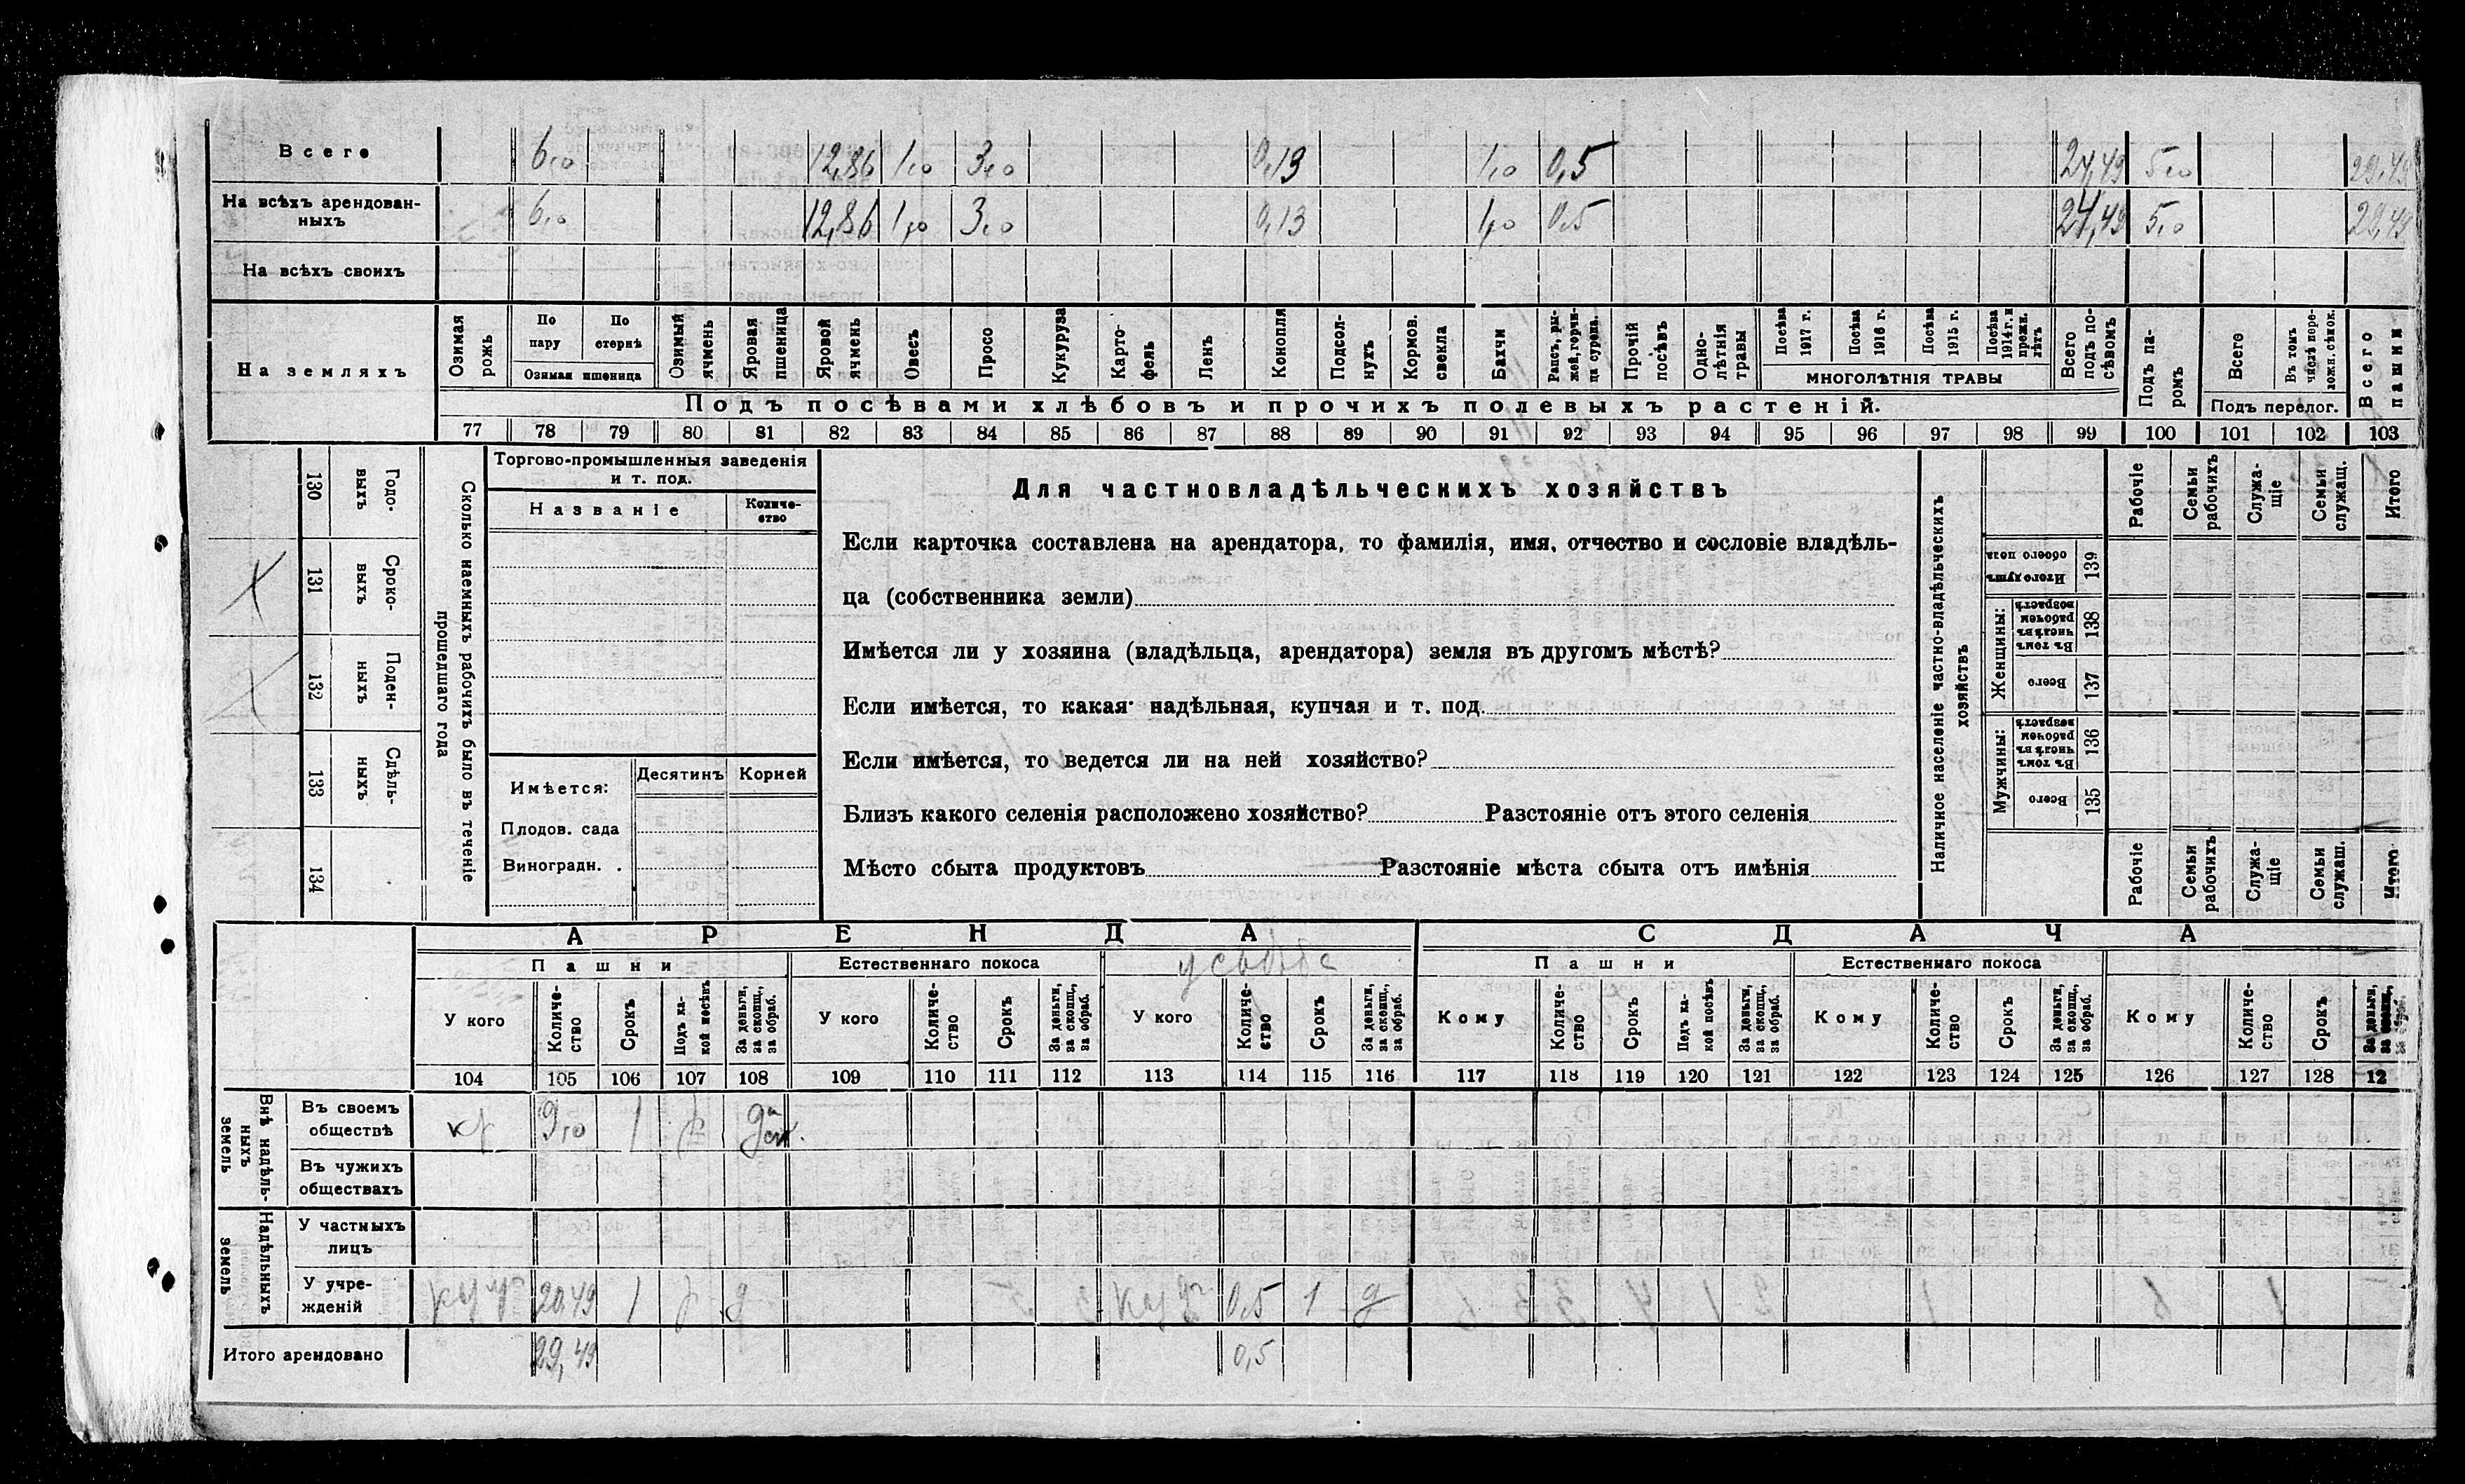 Всего 6,0 12,86 1,0 3,0 0,13 1,0 0,5 24,49 5,0 29,49
На всѣхъ арендован-
ныхъ 6,0 12,86 1,0 3,0 0,13 1,0 0,5 24,49 5,0 29,49
На всѣхъ своихъ
На земляхъ
Озимая рожь
По пару
По стернѣ
Озимая пшеница
Озимый ячмень
Яровая пшеница
Яровой ячмень
Овесъ
Просо
Кукуруза
Карто-
фель
Ленъ
Конопля
Подсол-
нухъ
Кормов. свекла
Бахчи
Рапсъ, ры-
жей, горчи-
ца сурепа.
Прочій посѣвъ
Одно-
лѣтнія травы
Посѣва 1917 г.
Посѣва 1916 г.
Посѣва 1915 г.
Посѣва 1914 г. и прежн. лѣтъ
МНОГОЛѢТНІЯ ТРАВЫ
Всего подъ по-
сѣвомъ
Подъ па-
ромъ
Всего
Въ томъ числѣ пере-
ложн. сѣнок.
Подъ перелог.
Всего пашни
Подъ посѣвами хлѣбовъ и прочихъ полевыхъ растеній.
77 78 79 80 81 82 83 84 85 86 87 88 89 90 91 92 93 94 95 96 97 98 99 100 101 102 103
130 Годо-
выхъ
131 Сроко-
выхъ
132 Поден-
ныхъ
133 Сдѣль-
ныхъ
134
Сколько наемныхъ рабочихъ было въ теченіе
прошедшаго года
Торгово-промышленныя заведенія
и т. под.
Названіе
Количе-
ство
Имѣется:
Десятинъ
Корней
Плодов. сада
Виноградн. .
Для частновладѣльческихъ хозяйствъ
Если карточка составлена на арендатора, то фамилія, имя, отчество и сословіе владѣль-
ца (собственника земли)
Имѣется ли у хозяина (владѣльца, арендатора) земля въ другомъ мѣстѣ?
Если имѣется, то какая: надѣльная, купчая и т. под.
Если имѣется, то ведется ли на ней хозяйство?
Близъ какого селенія расположено хозяйство? Разстояніе отъ этого селенія
Мѣсто сбыта продуктовъ Разстояніе мѣста сбыта отъ имѣнія
Наличное населеніе частно-владѣльческихъ
хозяйствъ
Рабочіе
Семьи рабочихъ
Служа-
щіе
Семьи служащ.
Итого
Итого душъ обоего пола 139
Женщины:
Въ томъ числѣ въ рабочемъ возрастѣ 138
Всего 137
Мужчины:
Въ томъ числѣ въ рабочемъ возрастѣ 136
Всего 135
Рабочіе
Семьи рабочихъ
Служа-
щіе
Семьи служащ.
Итого
АРЕНДА
СДАЧА
Пашни
Естественнаго покоса
Пашни
Естественнаго покоса
У кого
Количе-
ство
Срокъ
Подъ ка-
кой посѣвъ
За деньги, за скопщ., за обраб.
У кого
Количе-
ство
Срокъ
За деньги, за скопщ., за обраб.
У кого
Количе-
ство
Срокъ
За деньги, за скопщ., за обраб.
Кому
Количе-
ство
Срокъ
Подъ ка-
кой посѣвъ
За деньги, за скопщ., за обраб.
Кому
Количе-
ство
Срокъ
За деньги, за скопщ., за обраб.
Кому
Количе-
ство
Срокъ
За деньги, за скопщ., за обраб.
104 105 106 107 108 109 110 111 112 113 114 115 116 117 118 119 120 121 122 123 124 125 126 127 128 12
Внѣ надѣль-
ныхъ
земель
Въ своемъ
обществѣ кр 9,0 1
Въ чужихъ
обществахъ
Надѣльныхъ
земель
У частныхъ
лицъ
У учре-
жденій 20,49 1 д 0,5 1 д
Итого арендовано 29,49 0,5